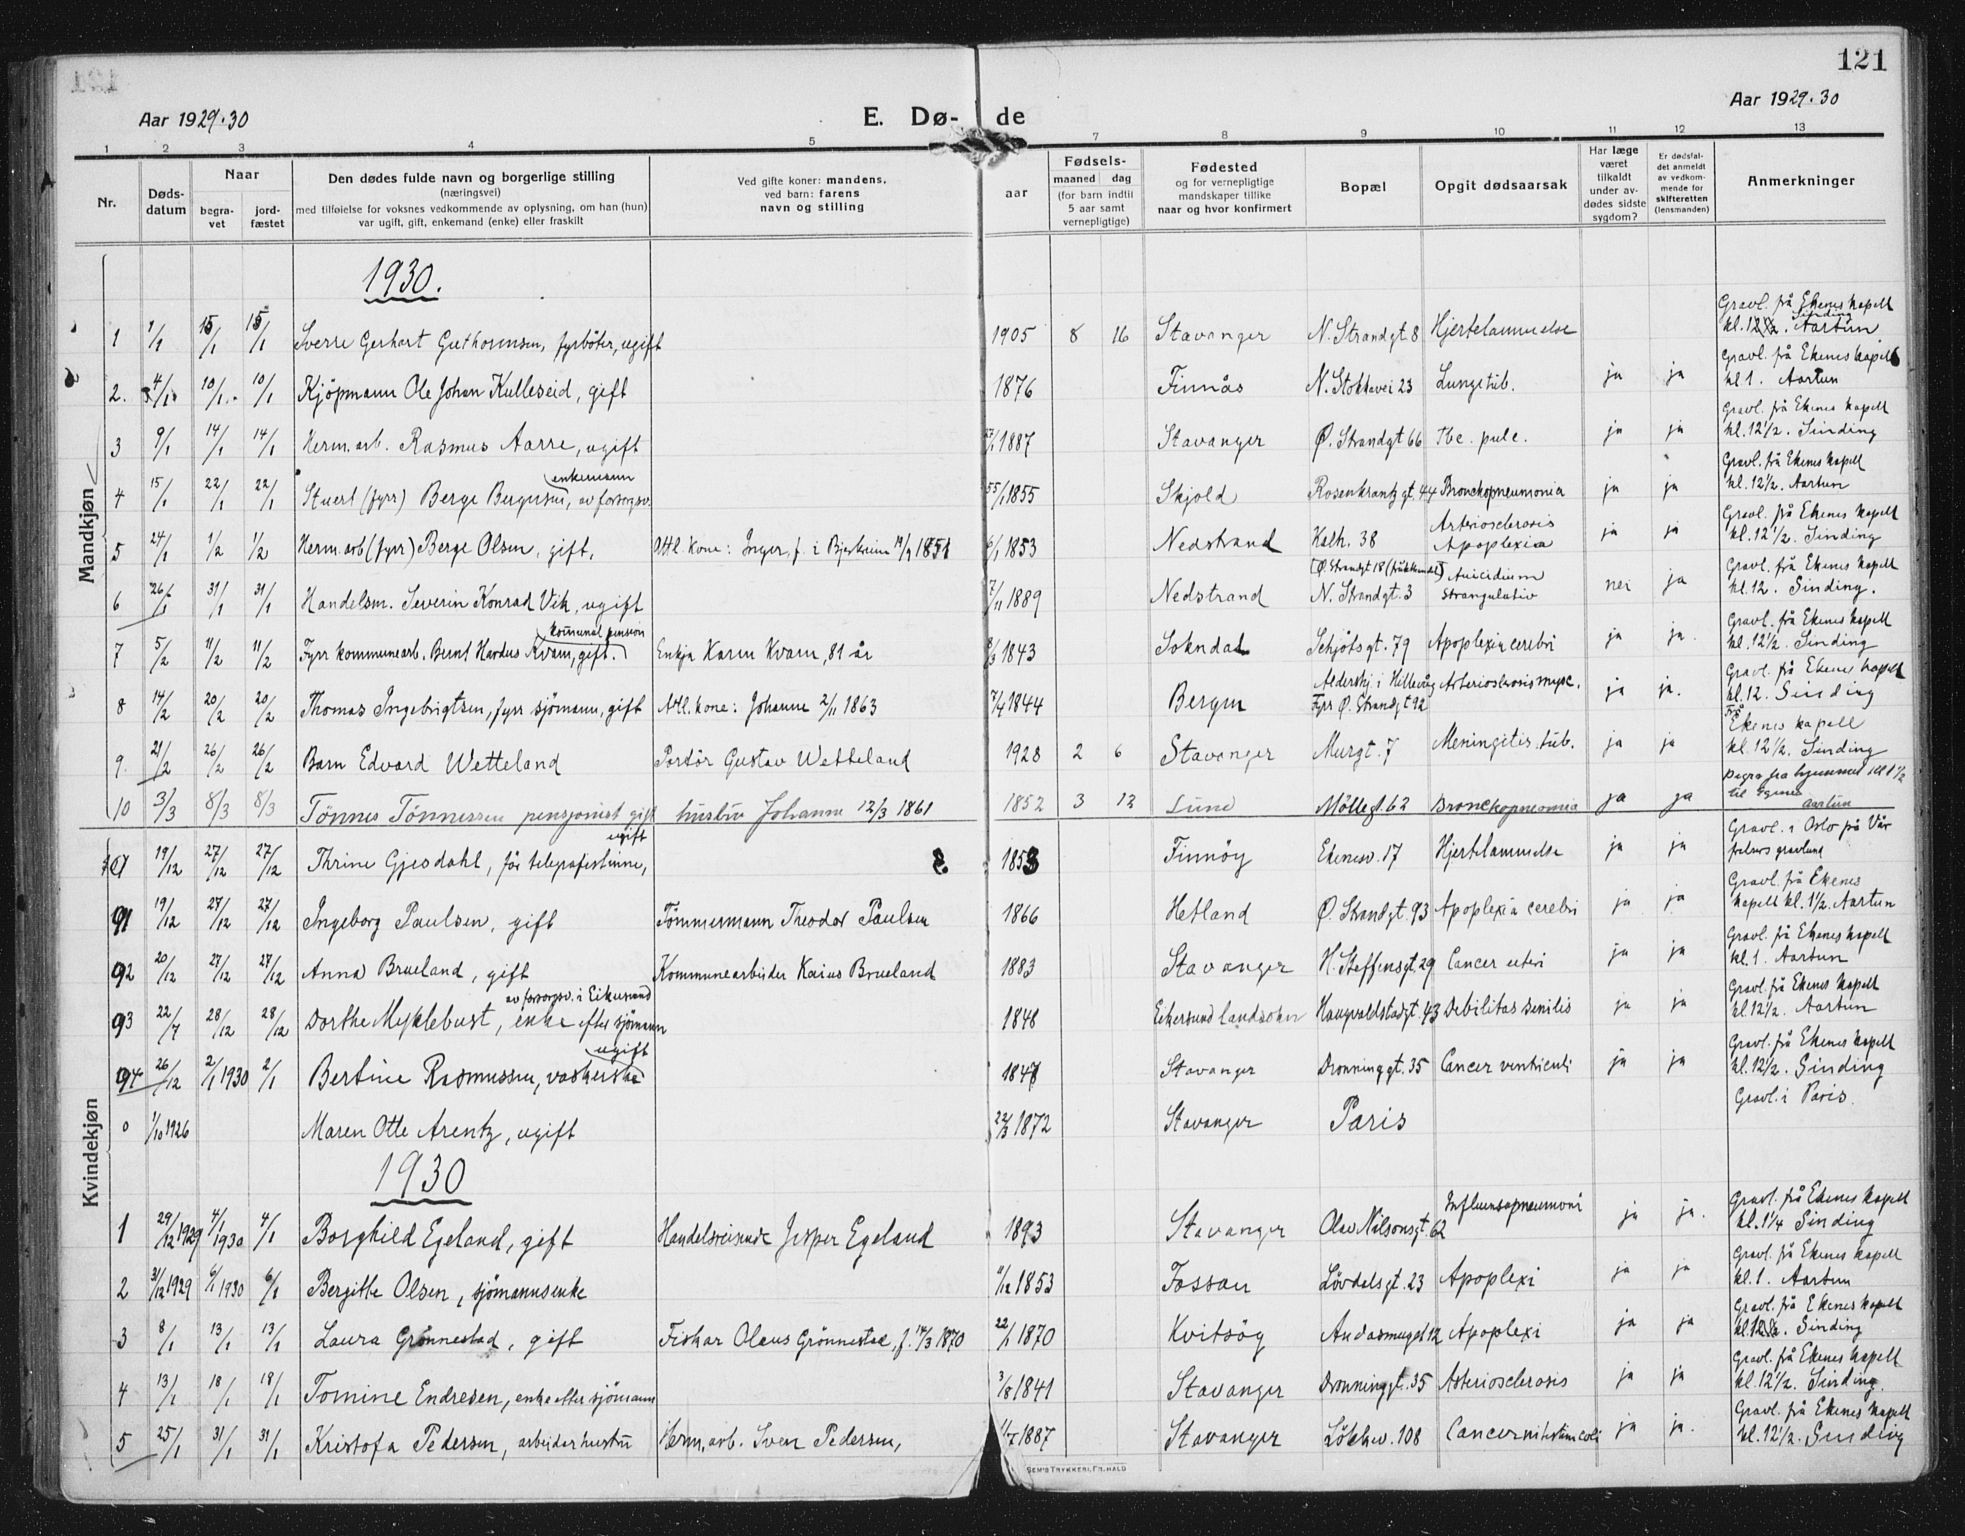 121
Aar 1929-30
E. Dø- de
Aar 1929-30
1 2 3 4 5 7 8 9 10 11 12 13
Nr.
Døds-datum
Naar
begra-vet
jord-fæstet
Den dødes fulde navn og borgerlige stilling
(næringsvei)
med tilføielse for voksnes vedkommende av oplysning, om han (hun)
var ugift, gift, enkemand (enke) eller fraskilt
Ved gifte koner: mandens,
ved barn: farens
navn og stilling
aar
Fødsels-
maaned dag
(for barn indtil
5 aar samt
vernepligtige)
Fødested
og for vernepligtige
mandskaper tillike
naar og hvor konfirmert
Bopæl
Opgit dødsaarsak
Har læge
været
tilkaldt
under av-
dødes sidste
sygdom?
Er dødsfal-
det anmeldt
av vedkom-
mende for
skifteretten
(lensmanden)
Anmerkninger
Mandkjøn
1930.
1 1/1 15/1 15/1 Sverre Gerhart Guthormsen, fyrbøter, ugift 1905 8 16 Stavanger N. Strandgt 8 Hjertelammelse Gravl. frå Ekenes kapell kl. Sinding
2. 4/1 10/1 10/1 Kjøpmann Ole Johan Kulleseid, gift 1876 Finnås N. Stokkavei 23 Lungetub. ja ja Gravl. frå Ekenes kapell kl 1. Aartun
3 9/1 14/1 14/1 Herm. arb. Rasmus Aarre, ugift 1887 Stavanger Ø. Strandgt 66 Tbc. pulc. ja ja Gravl. frå Ekenes kapell kl. 12 1/2. Sinding
4 15/1 22/1 22/1 Stuert (fyrr) Berge Bergesen, enkemann av forsorgsv. 1855 Skjold Rosenkrantzgt. 44 Bronchopneumonia ja ja Gravl. frå Ekenes kapell kl. 12 1/2. Aartun
5 24/1 1/2 1/2 Herm. arb (fyrr) Berge Olsen, gift. Attl. kone: Inger, f. i Bjerkreim 19/9 1851 1853 Nedstrand Kalh. 38 Arteriosclerosis Apoplexia ja ja Gravl. frå Ekenes kapell kl. 12 1/2. Sinding
6 26/1 31/1 31/1 Handelsm. Severin Konrad Vik, ugift 7/11 1889 Nedstrand Ø. Strandgt 18 N. Strandgt. 3 Suicidium Strangulatio nei ja Gravl. frå Ekenes kapell kl. 12. Sinding.
7 5/2 11/2 11/2 Fyrr kommunearb. Bernt Hardus Kvam, gift. komunal pension Enkja Karen Kvam, 81 år 8/3 1843 Sokndal Schjøtsgt. 79 Apoplexia cerebri ja ja. Gravl. frå Ekenes kapell kl. 12 1/2. Sinding
8 14/2 20/2 20/2 Thomas Ingebrigtsen, fyrr sjømann, gift Attl. kone: Johanne 2/11 1863 7/4 1844 Bergen Aldershj i Hillevåg Fyrr Ø. Strandgt 92 ja ja. Gravl. frå Ekenes kapell kl. 12. Sinding
9. 21/2 26/2 26/2 Barn Edvard Wetteland Portør Gustav Wetteland 1928 2 6 Stavanger Murgt. 7 Meningitis tub. ja ja Frå Ekenes kapell kl. 12 1/2. Sinding
10 3/3 8/3 8/3 Tønnes Tønnessen pensjonist gift hustru Johanne 12/3 1861 1852 3 12 Lund Møllegt. 62 Bronchopneumonia ja ja fra hjemmet kl 1 1/2 til Egenes Aartun
Kvindekjøn
90 19/12 27/12 27/12 Thrine Gjesdahl, før telegrafistinne, ugift 1853 Finnøy Ekenesv. 17 Hjertelammelse ja ja Gravl. i Oslo på Vår frelsers gravlund
91 19/12 27/12 27/12 Ingeborg Paulsen, gift Tømmermann Theodor Paulsen 1866 Hetland Ø. Strandgt. 93 Apoplexia cerebri ja ja Gravl. frå Ekenes kapell kl. 1 1/2. Aartun
92 20/12 27/12 27/12 Anna Brueland, gift Kommunearbeider Kaius Brueland 1883 Stavanger H. Steffensgt. 29 Cancer uteri ja ja Gravl. frå Ekenes kapell kl. 1. Aartun
93 22/7 28/12 28/12 Dorthe Myklebust, enke efter sjømann av forsorgsv. i Eikersund 1848 Eikersund landsokn Haugvaldstadgt. 43 Debilitas senilis ja ja Gravl. frå Ekenes kapell kl. 12 1/2. Aartun
94 26/12 2/1 1930 2/1 Bertine Rasmussen, vaskerske ugift 1847 Stavanger Dronninggt. 35 Cancer ventriculi ja ja Gravl. frå Ekenes kapell kl. 12 1/2. Sinding
0 1/10 1926 Maren Otte Arentz, ugift 22/3 1872 Stavanger Paris Gravl. i Paris.
1930
1 29/12 1929 4/1 1930 4/1 Borghild Egeland, gift Handelsreisende Jesper Egeland 1893 Stavanger Olav Nilsonsgt. 62 Influensapneumoni ja ja. Gravl. frå Ekenes kapell kl. 1 1/4 Sinding
2 31/12 1929 6/1 1930 6/1 Bergitte Olsen, sjømannsenke 1853 Fossan Løvdalsgt. 23 Apoplexi ja ja Gravl. frå Ekenes kapell kl. 1. Aartun
3 8/1 13/1 13/1 Laura Grønnestad, gift Fiskar Olaus Grønnestad, f. 14/3 1870 22/1 1870 Kvitsøy Andasmuget 12 Apoplexi ja ja Gravl. frå Ekenes kapell kl. Sinding
4 13/1 18/1 18/1 Tomine Endresen, enke etter sjømann 3/8 1841 Stavanger Dronninggt. 35 Arteriosclerosis ja ja Gravl. frå Ekenes kapell kl. 12 1/2. Sinding.
5 25/1 31/1 31/1 Kristofa Pedersen, arbeiderhustru Herm. arb. Sven Pedersen, 1887 Stavanger Løkkev. 108 ja ja. Gravl. frå Ekenes kapell kl. 12 1/2. Sinding
SEM'S TRYKKERI, FR.HALD